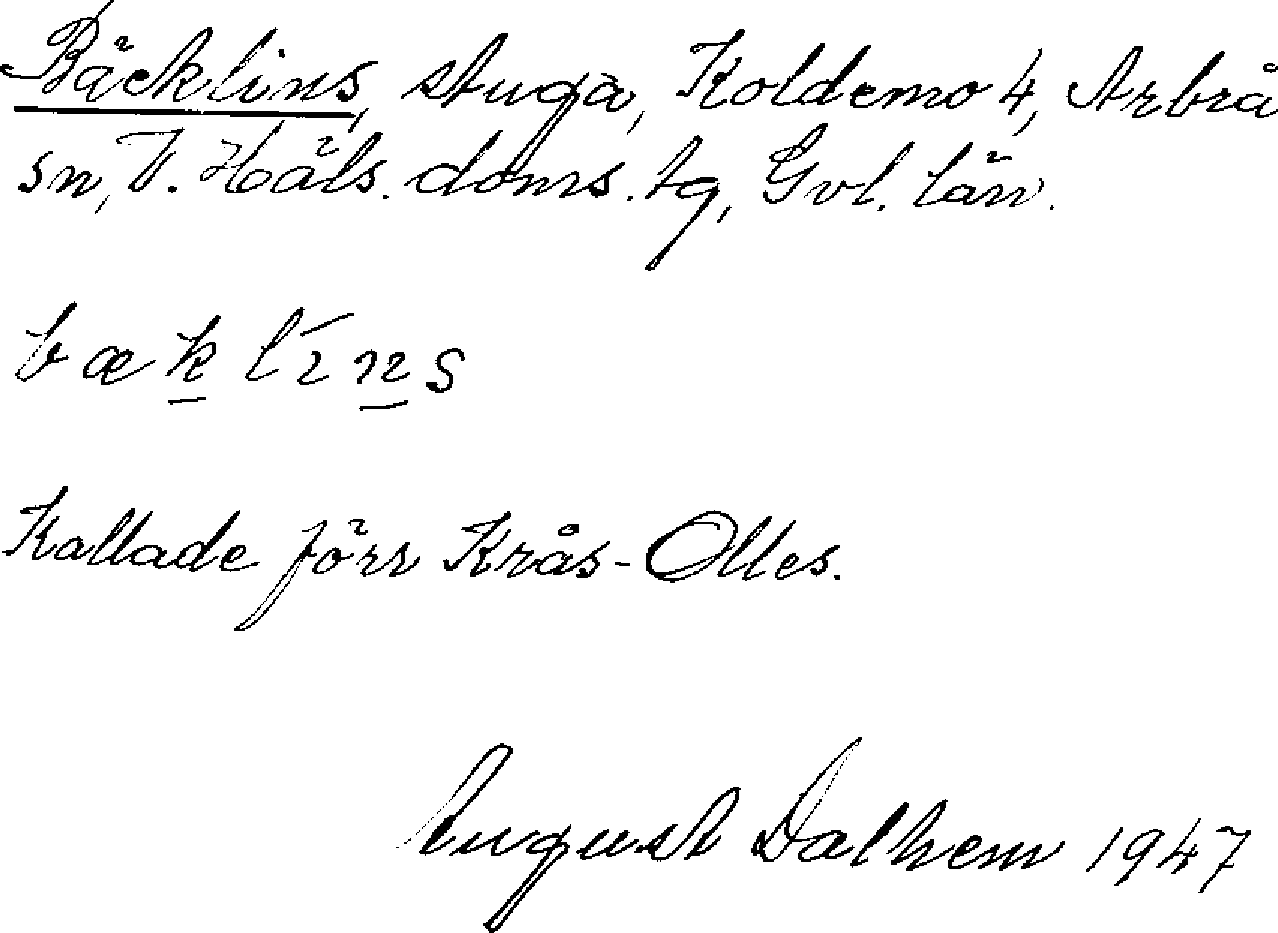 Bäcklins, stuga, Koldemo 4, Arbrå
sn, V. Häls. doms. tg, Gvl. län.
bæk̲ lín̲s
Kallade förr Krås-Olles.
August Dalhem 1947